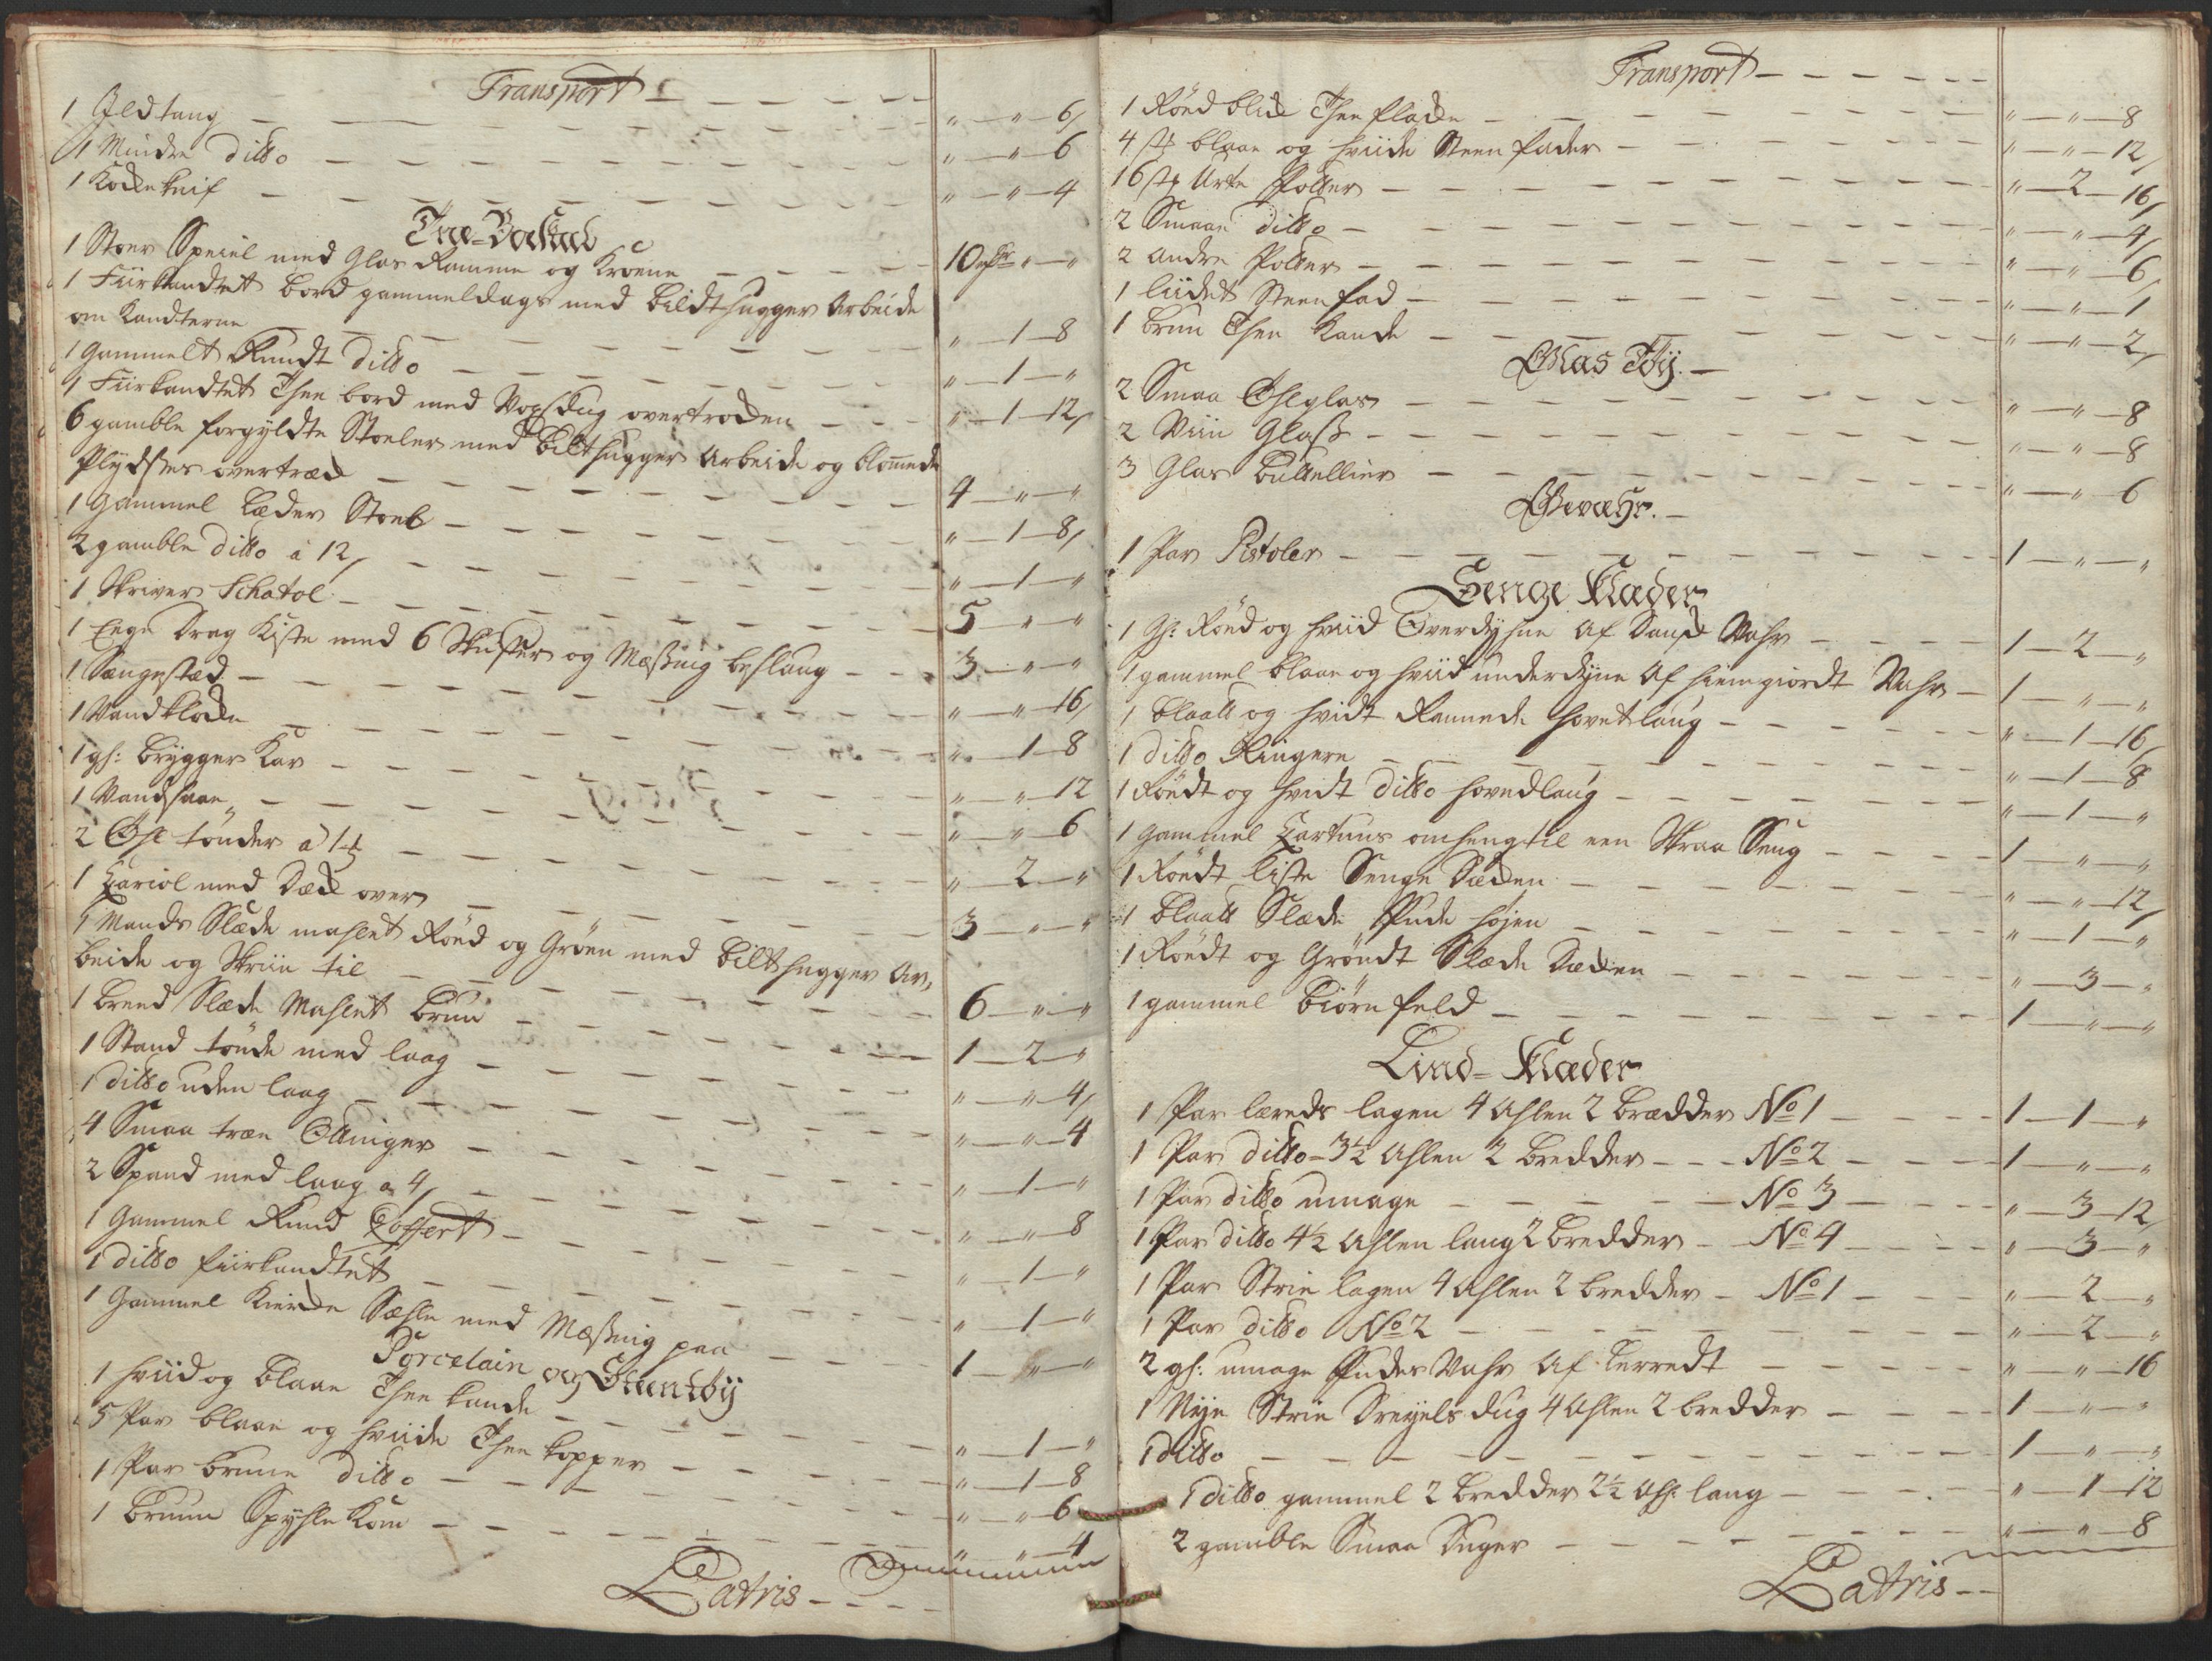 Transport
1 Ildtang — " — " — 6
1 Mindre ditto — " — " — 6
1 Kockeknif — " — " — 4
Træ-Bohaed
1 Stoer Speiel med Glas Ramme og Kroene — 10 rdr " — "
1 Fiirkandtet bord gammeldags med bildthugger Arbeide
om Kandterne — " — 1 — 8
1 Gammelt Rundt ditto — " — 1 — "
1 Fiirkandtet Thee bord med Voxdug overtrocken — " — 1 — 12
6 gamble forgyldte Stoeler med bilthugger Arbeide og blomede
Plydses overtræk — 4 — " — "
1 Gammel Læder Stoel — " — 1 — 8
2 gamble ditto a 12 — " — 1 — "
1 Skriver Schatol — 5 — " — "
1 Eege Drag Kiste med 6 Skuffer og Messing beslaug — 3 — " — "
1 Sengested — " — " — 16
1 Vandklocke — " — 1 — 8
1 gl: brygger Kar — " — " — 12
1 Vandsaae — " — " — 6
2 Øhl tønder a 1 — " — 2 — "
1 Cariol med Deck over — 3 — " — "
1 Mands Slæde mahlet Røed og Grøen med bilthugger Ar,
beide og Skriin til — 6 — " — "
1 breed Slæde Mahlet bruun — 1 — 2 — "
1 Stand tønde med laag — " — " — 4
1 ditto uden laag — " — " — 4
4 Smaa træe Ottinger — " — 1 — "
2 Spand med laag a 4 — " — " — 8
1 Gammel Rund Coffert — " — 1 — "
1 ditto fiirkandtet — " — 1 — "
1 Gammel Sæhle med Messing paa — 1 — " — "
Porcelain og Steentøy
1 hviid og blaae Thee kande — " — 1 — "
5 Par blaae og hviide Thee kopper — " — 1 — 8
1 Par brune ditto — " — " — 6
1 bruun Spyhle Kom — " — " — 4
Latris
Transport
1 Røed Thee flaske — " — " — 8
4 st blaae og hviide Steen fader — " — " — 12
16 st Urte Potter — " — 2 — 16
2 Smaae ditto — " — " — 4
2 andre Potter — " — " — 6
1 liidet Steen fad — " — " — 1
1 bruun Thee Kande — " — " — 2
Glas Tøy
2 Smaa Øhlglas — " — " — 8
2 Viin Glass — " — " — 8
3 Glas buttellier — " — " — 6
Gevæhr
1 Par Pistoler — 1 — " — "
Senge Klæder
1 Gl: Røed og hviid Overdyhne Af Dansk Vahr — 1 — 2 — "
1 gammel blaae og hviid underdyne Af hiemgiordt Vahr — 1 — " — "
1 blaatt og hvidt Rannede hovetlaug — " — 1 — 16
1 ditto Ringere — " — 1 — 8
1 Røedt og hvidt ditto hovedlaug — " — 1 — "
1 Gammel Cartuns omheng til een Skraa Seng — 1 — " — "
1 Røedt liste Senge Decken — " — " — 12
1 blaatt Slæde Pude — " — 1 — "
1 Røedt og Grøndt Slæde Decken — " — 3 — "
1 gammel biørnfeld — 1 — " — "
Lind-Klæder
1 Par lereds lagen 4 Ahlen 2 bredder No 1 — 1 — 1 — "
1 Par ditto 3½ Ahlen 2 bredder No 2 — 1 — " — "
1 Par ditto umage No 3 — " — 3 — 12
1 Par ditto 4½ Ahlen lang 2 bredder No 4 — " — 3 — "
1 Par Strie lagen 4 Ahlen 2 bredder No 1 — " — 2 — "
1 Par ditto No 2 — " — 2 — "
2 gl: umage Puder Vahr Af Lerredt — " — " — 16
1 Nye Strie Dreyels dug 4 Ahlen 2 bredder — 1 — " — "
1 ditto — 1 — " — "
1 ditto gammel 2 bredder 2½ Ahl: lang — " — 1 — 12
2 gamble Smaa Duger — " — " — 8
Latris